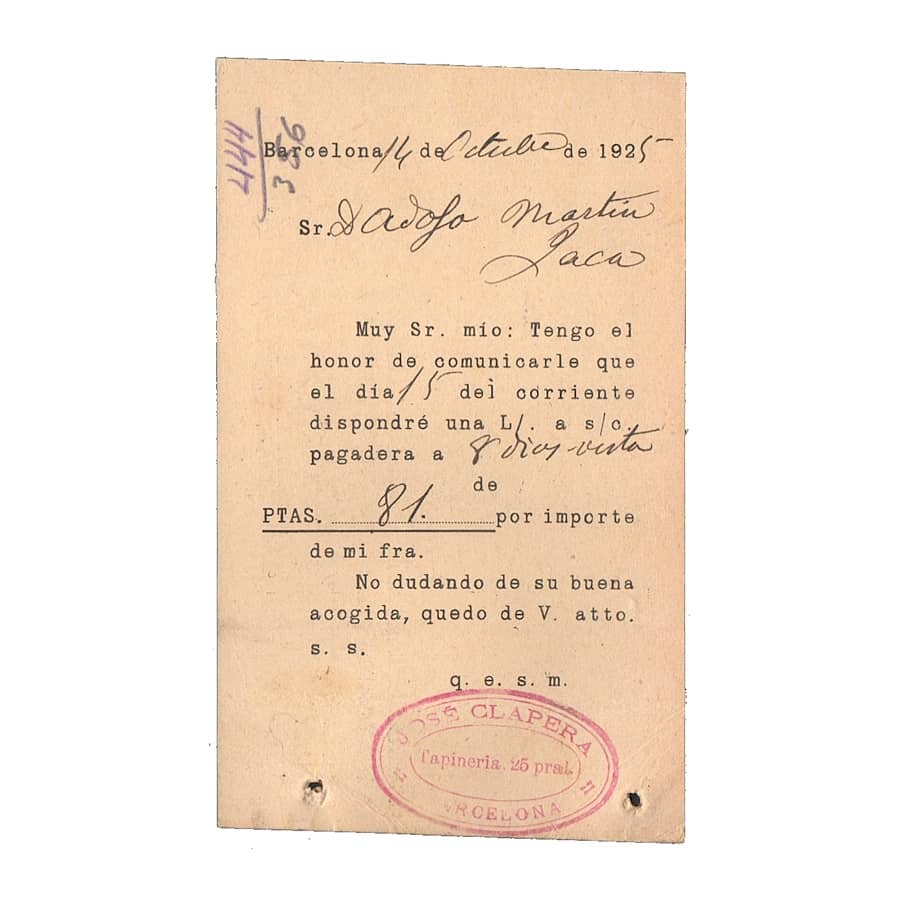 4144
356
Barcelona 14 de Octubre de 1925
Sr. D Adolfo Martin
Jaca
Muy Sr. mío: Tengo el
honor de comunicarle que
el día 15 del corriente
dispondré una L/. a s/c.
pagadera a 8 dias vista
de
PTAS. 81. por importe
de mi fra.
No dudando de su buena
acogida, quedo de V. atto.
s. s.
q. e. s. m.
JOSÉ CLAPERA
Tapineria. 25 pral.
BARCELONA